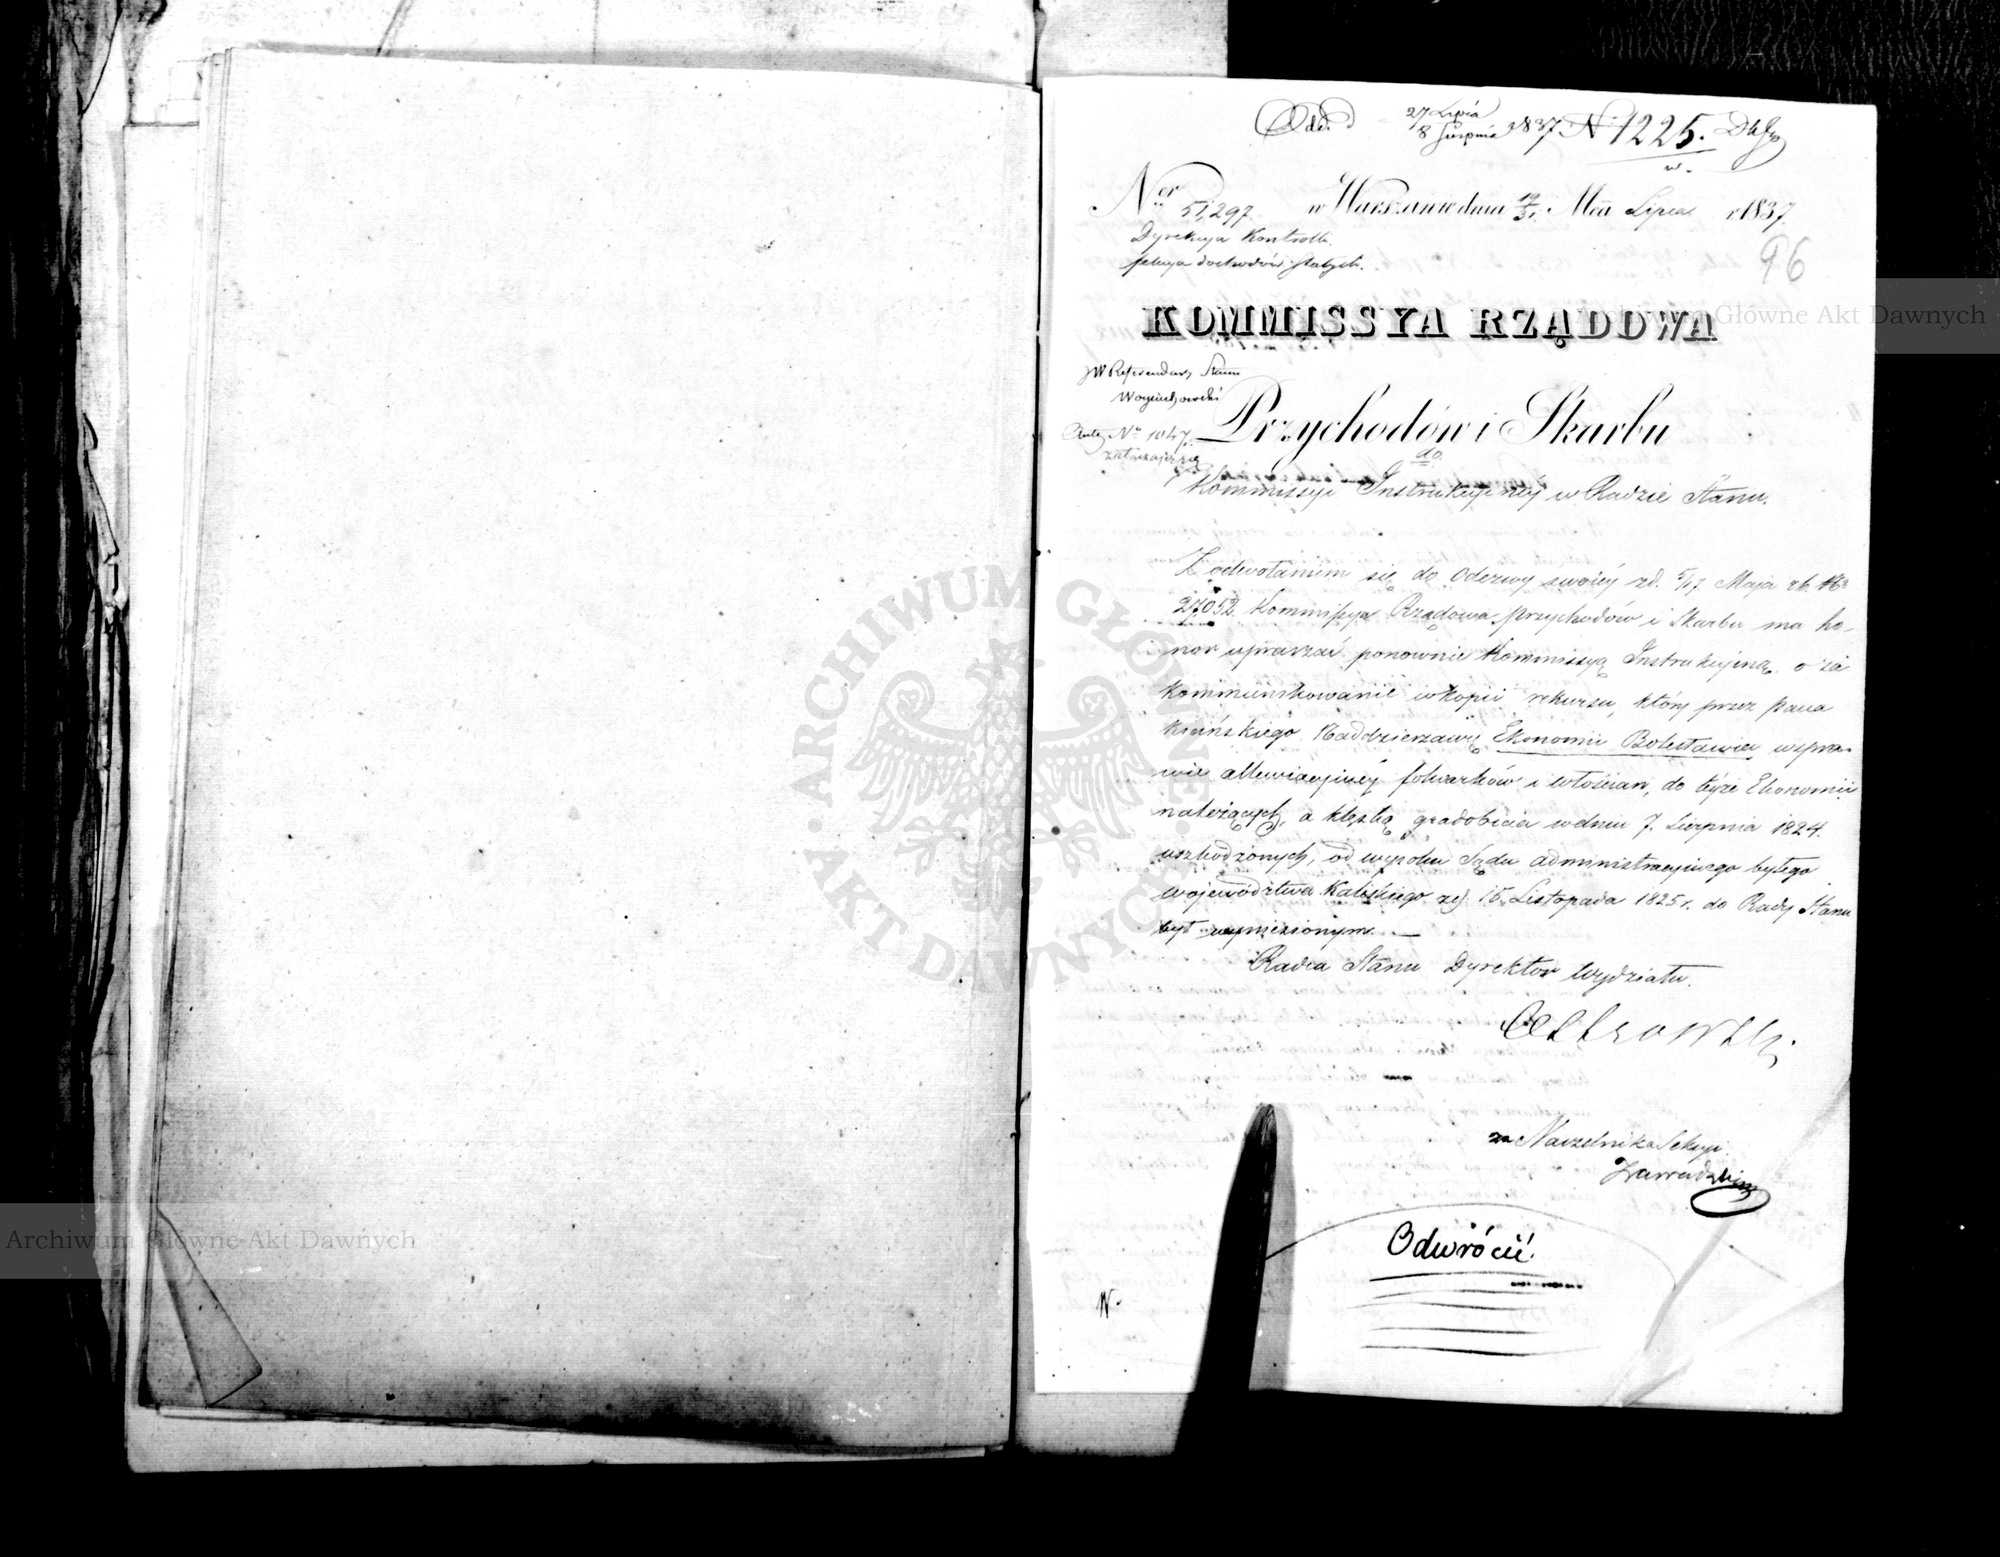 Odd. d 27 Lipca
8 Sierpnia 1837 N. 1225.
Ner 51,297. w Warszawie dnia 19/31. Mca Lipca r 1837.
Dyrekcya Kontrolli.
Sekcya dochodów stałych.
96
KOMMISSYA RZĄDOWA
JW Referendarz Stanu
Woyciechowski
Przychodów i Skarbu
N° 1047.
do
Kommissyi Instrukcyjnéy w Radzie Stanu.
Z odwołaniem się do Odezwy swoiéy zd. 5/17 Maja rb. No
27052 Kommissya Rządowa Przychodów i Skarbu ma ho-
nor upraszać ponownie Kommissyą Instrukcyjną o za
kommunikowanie w kopii rekursu, który przez Pana
Naddzierżawcę Ekonomii Bolesławiec w spra-
wie allewiacyjnéy folwarków i włościan, do téyże Ekonomii
należących, a klęską gradobicia w dniu 7. Sierpnia 1824.
uszkodzonych, od wyroku Sądu administracyjnego byłego
Województwa Kaliskiego zd 15 Listopada 1825 r. do Rady Stanu
był wyniesionym. —
Radca Stanu Dyrektor Wydziału.
za Naczelnika Sekcyi.
Zawadzki
Odwrócić.
N.
Archiwum Główne Akt Dawnych
ARCHIWUM GŁÓWNE
AKT DAWNYCH
Archiwum Główne Akt Dawnych